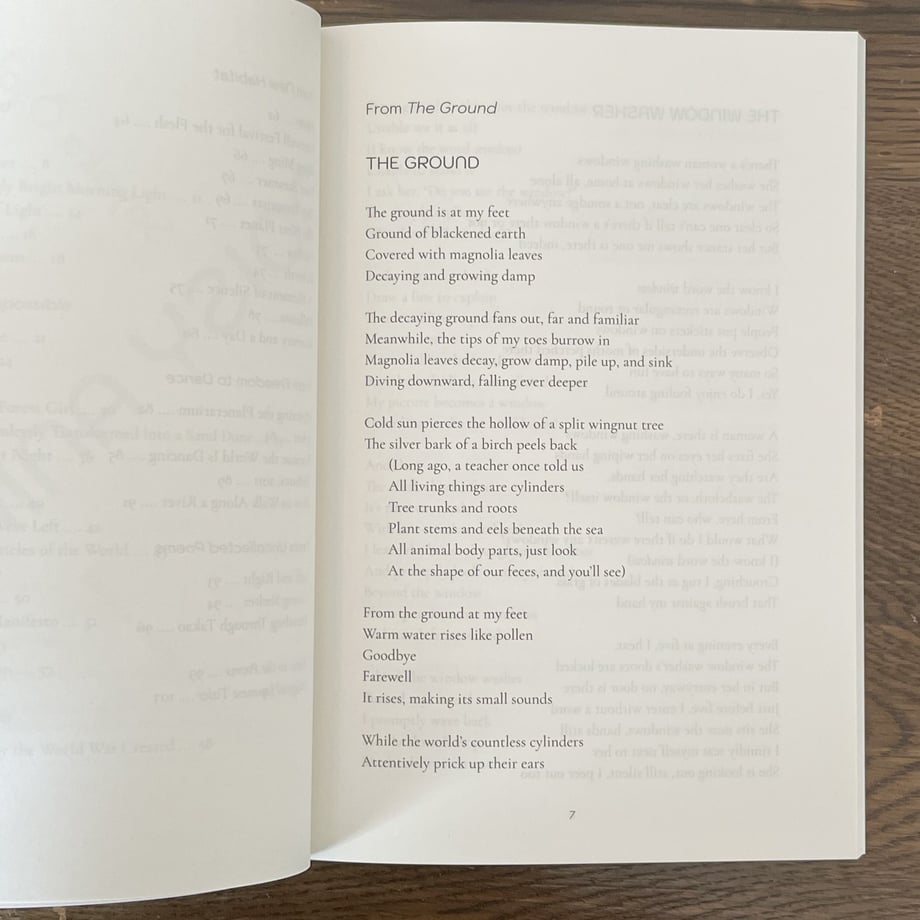 From The Ground
THE GROUND
The ground is at my feet
Ground of blackened earth
Covered with magnolia leaves
Decaying and growing damp
The decaying ground fans out, far and familiar
Meanwhile, the tips of my toes burrow in
Magnolia leaves decay, grow damp, pile up, and sink
Diving downward, falling ever deeper
Cold sun pierces the hollow of a split wingnut tree
The silver bark of a birch peels back
(Long ago, a teacher once told us
All living things are cylinders
Tree trunks and roots
Plant stems and eels beneath the sea
All animal body parts, just look
At the shape of our feces, and you'll see)
From the ground at my feet
Warm water rises like pollen
Goodbye
Farewell
It rises, making its small sounds
While the world's countless cylinders
Attentively prick up their ears
7